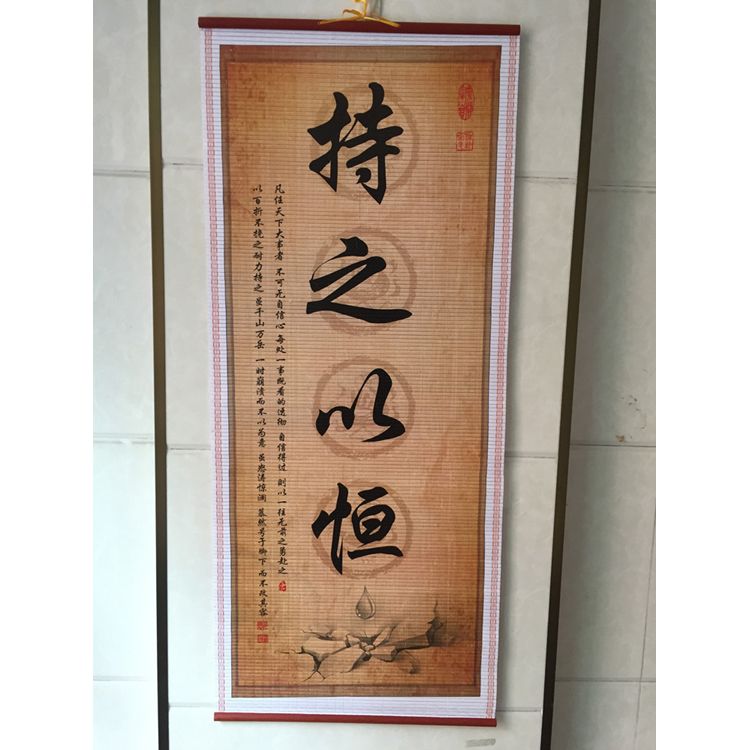 持之以恒
凡任天下大事者 不可无自信心 每处一事既看的透彻 自信得过 则以一往无前之勇赴之
以百折不挠之耐力持之 虽千山万岳 一时崩溃而不以为意 虽怒涛惊澜 蓦然号于脚下 而不改其容